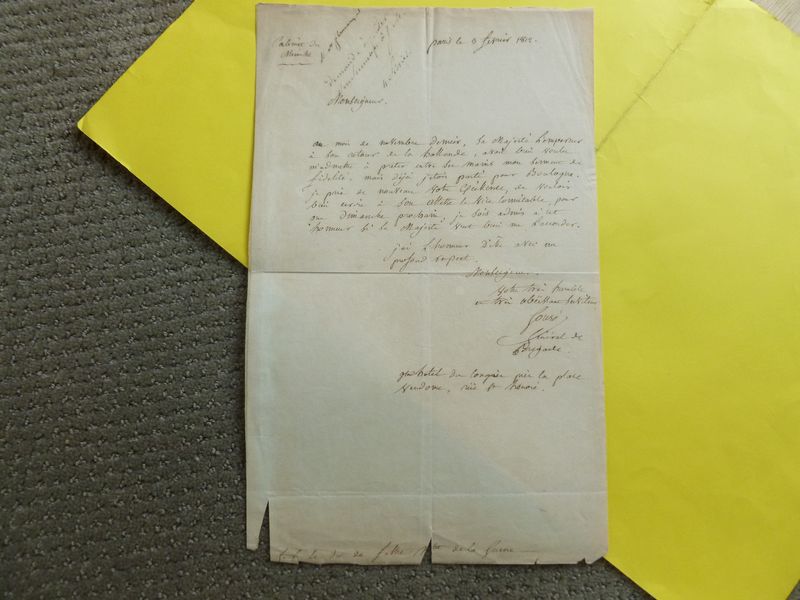 paris le 3 février 1812.
Cabinet du
Ministre
Monseigneur.
au mois de novembre dernier, Sa Majesté L'empereur
à son retour de la hollande, avait bien voulu
m'admettre à prêter entre ses mains mon serment de
fidélité, mais déjà j'étois parti pour Boulogne.
je prie de nouveau votre Excellence, de vouloir
bien écrire à Son altesse le Vice Connétable, pour
que dimanche prochain, je sois admis à cet
honneur si Sa Majesté veut bien me l'accorder.
j'ai l'honneur d'être avec un
profond respect.
Monseigneur.
votre très humble
et très obéissant serviteur
Général de
Brigade.
hotel du congrès près la place
vendome, rue St honoré.
de la Guerre